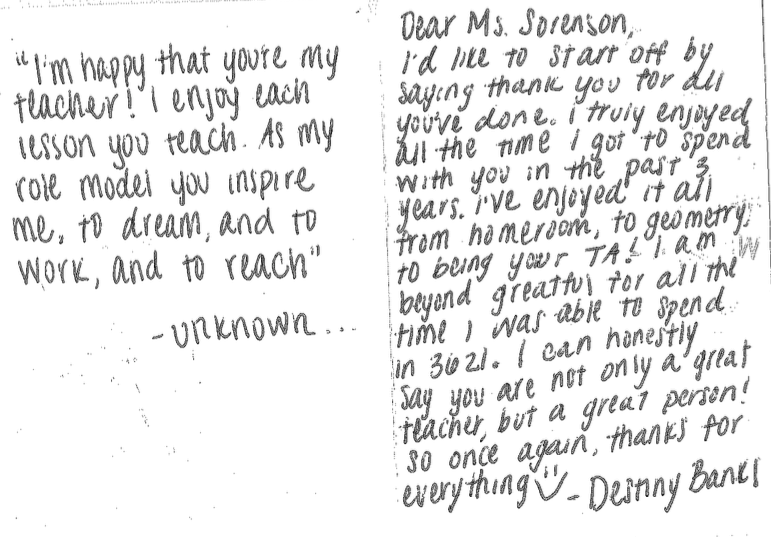 "I'm happy that you're my
teacher! I enjoy each
lesson you teach. As my
role model you inspire
me, to dream, and to
work, and to reach"
-unknown...
Dear Ms. Sorenson,
I'd like to start off by
saying thank you for all
you've done. I truly enjoyed
all the time I got to spend
with you in the past 3
years. I've enjoyed it all
from homeroom, to geometry,
to being your TA! I am
beyond greatful for all the
time I was able to spend
in 3621. I can honestly
say you are not only a great
teacher, but a great person!
so once again, thanks for
everything - Destiny Banks